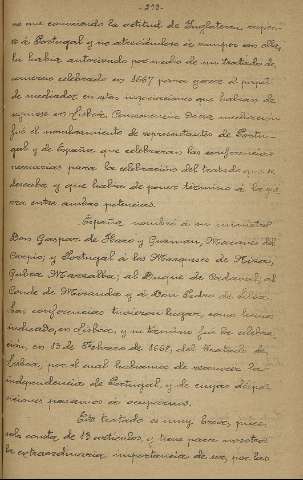 -213-
na que conociendo la actitud de Inglaterra, respec-
to á Portugal y no atreviéndose á romper con ella,
la habia autorizado por medio de un tratado de
comercio celebrado en 1667 para ejercer el papel
de mediadora en estas negociaciones que habian de
seguirse en Lisboa. Consecuencia de esa mediacion
fué el nombramiento de representantes de Portu-
gal y de España que celebraran las conferencias
necesarias para la celebración del tratado que se
deseaba y que habia de poner término á la gue-
rra entre ambas potencias.
España nombró á su ministro
Don Gaspar de Haro y Guzman, Marqués del
Carpio, y Portugal á los Marqueses de Niza,
Gubea Marialba; al Duque de Cadaval, al
Conde de Miranda y á Don Pedro de Silva.
Las conferencias tuvieron lugar, como hemos
indicado, en Lisboa, y su término fué la celebra-
ción, en 13 de Febrero de 1668, del Tratado de
Lisboa, por el cual hubimos de reconocer la
independencia de Portugal, y de cuyas dispo-
siciones pasamos á ocuparnos.
Este tratado es muy breve, pues
solo consta de 13 artículos, y tiene para nosotros
la extraordinaria importancia de ser, por las